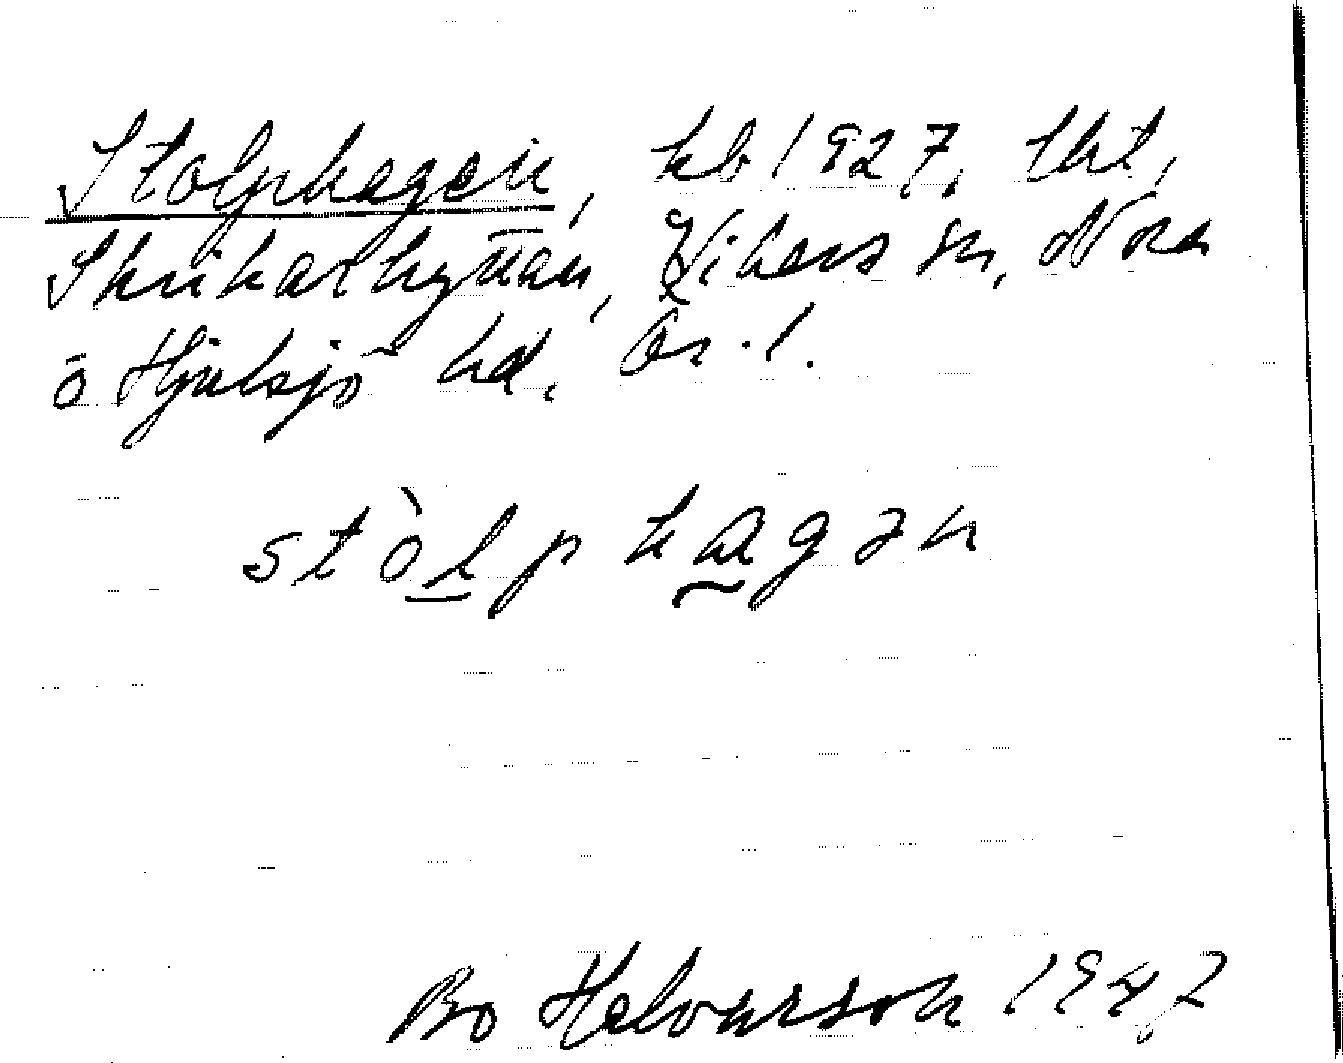 Stolphagen, kb 1927, tht,
Skrikarhyttan, Vikers sn, Nora
o Hjulsjö hd, Ör. l.
stòlphagən
Bo Helvarson 1947